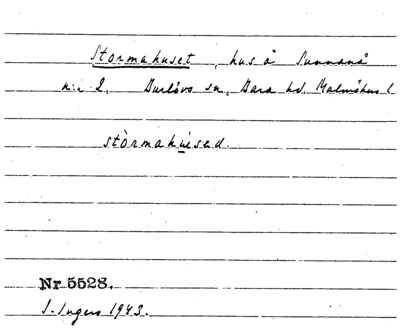 Stormahuset, hus å Sunnanå
n:r 2, Burlövs sn, Bara hd, Malmöhus l.
stòrmahuised.
Nr 5528.
I. Ingers 1943.